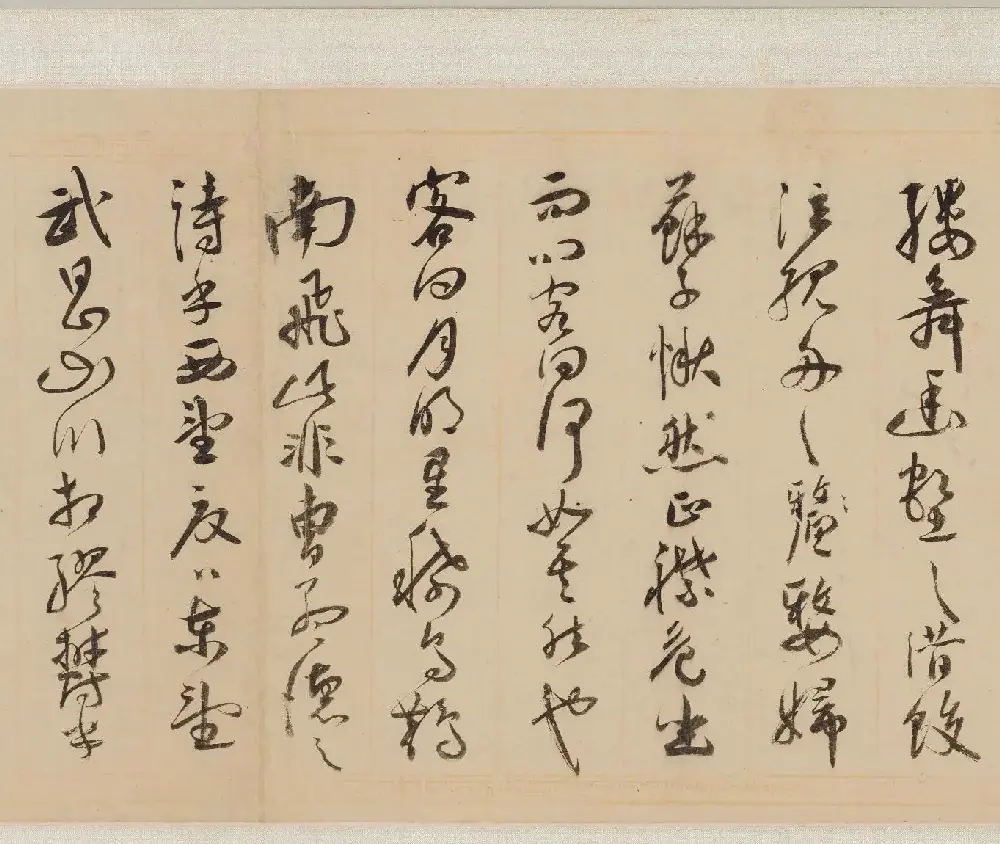 縷舞幽壑之潛蛟
泣孤舟之嫠婦
蘇子愀然正襟危坐
而問客曰何為其然也
客曰月明星稀烏鵲
南飛此非曹孟德之
詩乎西望夏口東望
武昌山川相繆鬱乎